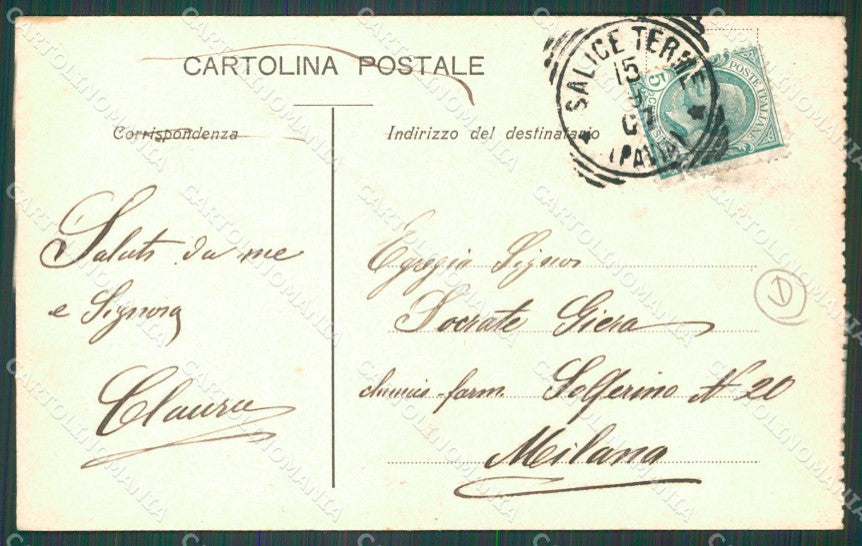 CARTOLINA POSTALE
Corrispondenza
Indirizzo del destinatario
SALICE TERME
15
(PAVIA)
POSTE ITALIANE
5
Saluti da me
e Signora
Egregio Signor
Socrate Giera
chimico-farm. Solferino N 20
Milano
D
CARTOLINOMANIA